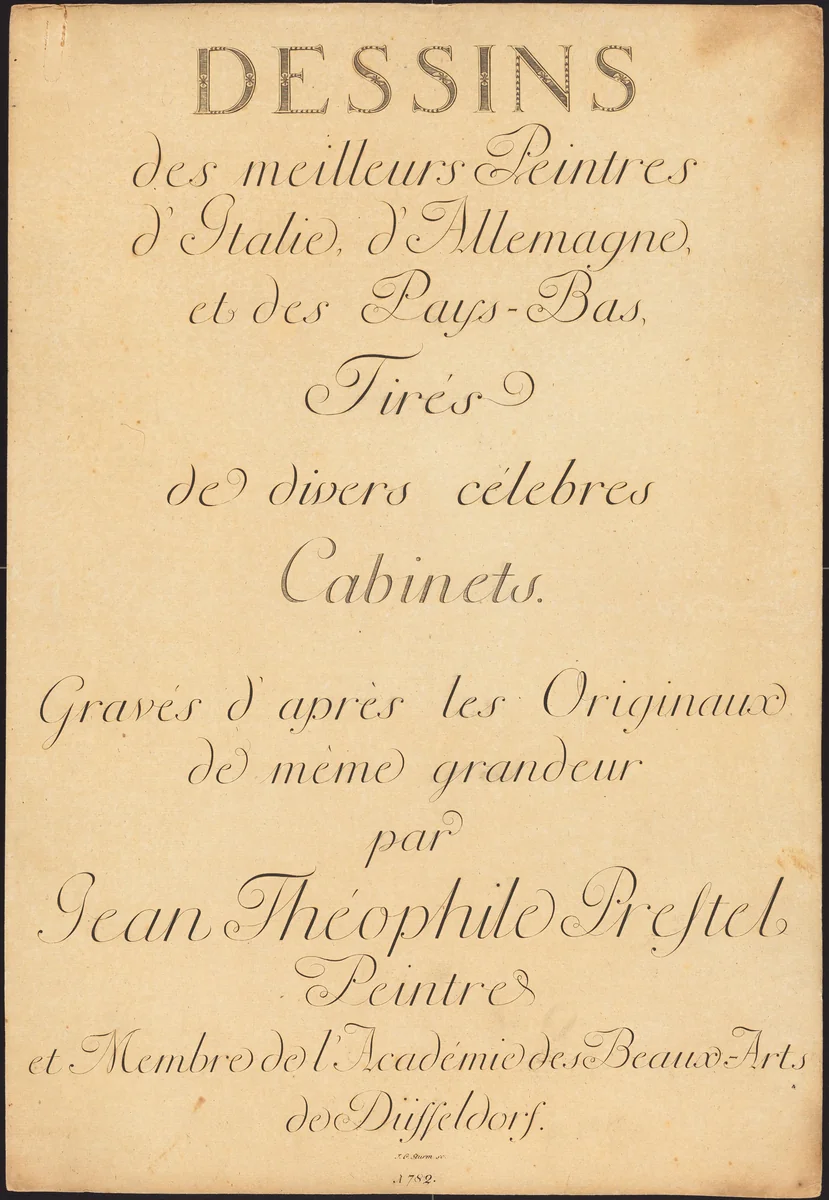 DESSINS
des meilleurs Peintres
d'Italie, d'Allemagne,
et des Pays-Bas,
Tirés
de divers célebres
Cabinets.
Gravés d'après les Originaux
de mème grandeur
par
Jean Théophile Preſtel
Peintre
et Membre de l'Académie des Beaux-Arts
de Düſſeldorf.
J. G. Sturm sc.
1782.